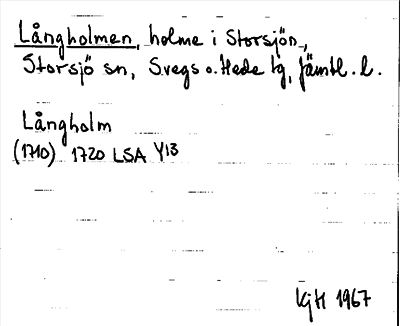 Långholmen, holme i Storsjön,
Storsjö sn, Svegs o. Hede tg, Jämtl. l.
Långholm
(1710) 1720 LSA Y13
KgH 1967